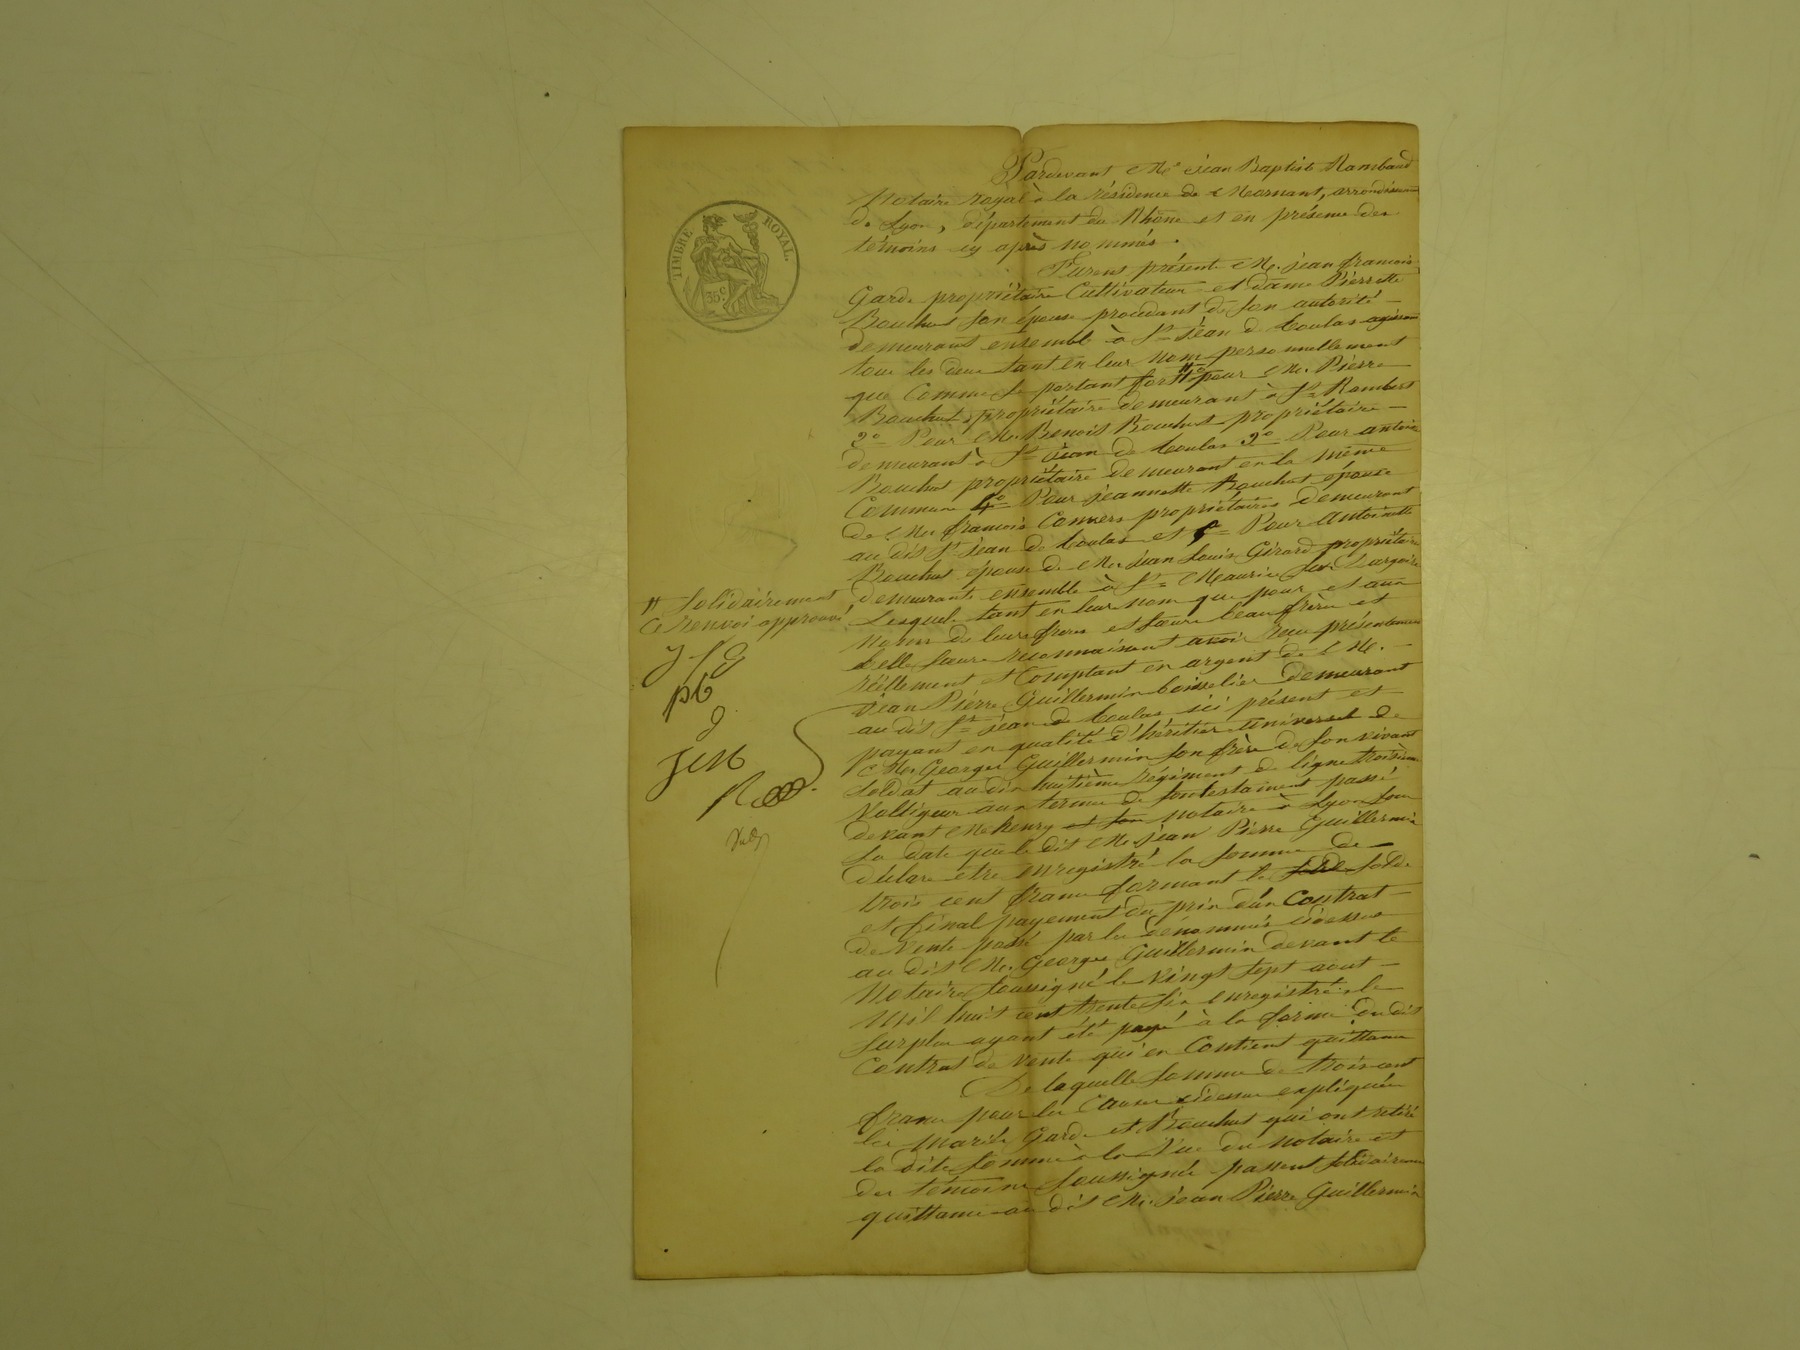 TIMBRE ROYAL.
35c.
Pardevant Me. jean Baptiste Rambaud
Notaire royal à la résidence de Mornant, arrondissement
de Lyon, département du Rhône et en présence des
témoins cy après nommés.
Furent présents Mr. jean françois
Garde propriétaire Cultivateur et dame Pierrette
Bouchut son épouse procédant de son autorité
demeurant ensemble à St. jean de toulas agissant
tous les deux tant en leur nom personnellement
que Comme se portant fort # 1o pour Mr. Pierre
Bouchut, propriétaire demeurant à St. Rambert
2o Pour Mr. Benoit Bouchut propriétaire
demeurant à St. jean de toulas 3o Pour antoine
Bouchut propriétaire demeurant en la même
Commune 4o Pour jeannette Bouchut épouse
de Mr. françois Convers propriétaires demeurant
au dit St. jean de toulas et 5o Pour antoinette
Bouchut épouse de Mr. jean Louis Girard propriétaire
demeurants ensemble à St. Maurice sur Dargoire
Lesquels tant en leur nom que pour et aux
noms de leurs freres et sœurs beau frère et
belle sœurs reconnaissent avoir recu présentement
réellement et Comptant en argent de Mr.
jean Pierre Guillermin boisselier demeurant
au dit St. jean de toulas ici présent et
payant en qualité d'héritier universel de
Mr. George Guillermin son frère de son vivant
soldat au dix huitième régiment de ligne troisième
Voltigeur aux termes de son testament passé
devant Me henry et son notaire à Lyon sous
sa date que le dit Mr jean Pierre Guillermin
déclare etre enregistré la somme de
trois cent francs formant le solde solde
et final payement du prix d'un Contrat
de vente passé par les dénommés cidessus
au dit Mr. George Guillermin devant le
Notaire soussigné le vingt sept aout
Mil huit cent trente six enregistré, le
surplus ayant été payé à la forme du dit
Contrat de vente qui en Contient quittance
De laquelle somme de trois cent
francs pour les Causes cidessus expliquées
les mariés Garde et Bouchut qui ont retiré
la dite somme à la vue du notaire et
des témoins soussignés passent solidairement
quittance au dit Mr. jean Pierre Guillermin
# Solidairement
Ce renvoi approuvé
J f G
pb
g